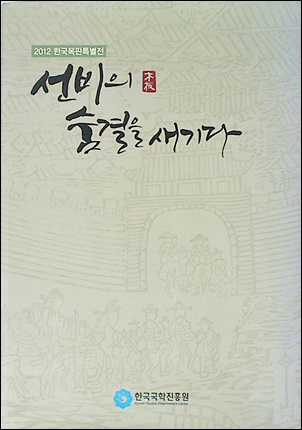 2012 한국목판특별전
선비의 木板
숨결을 새기다
한국국학진흥원